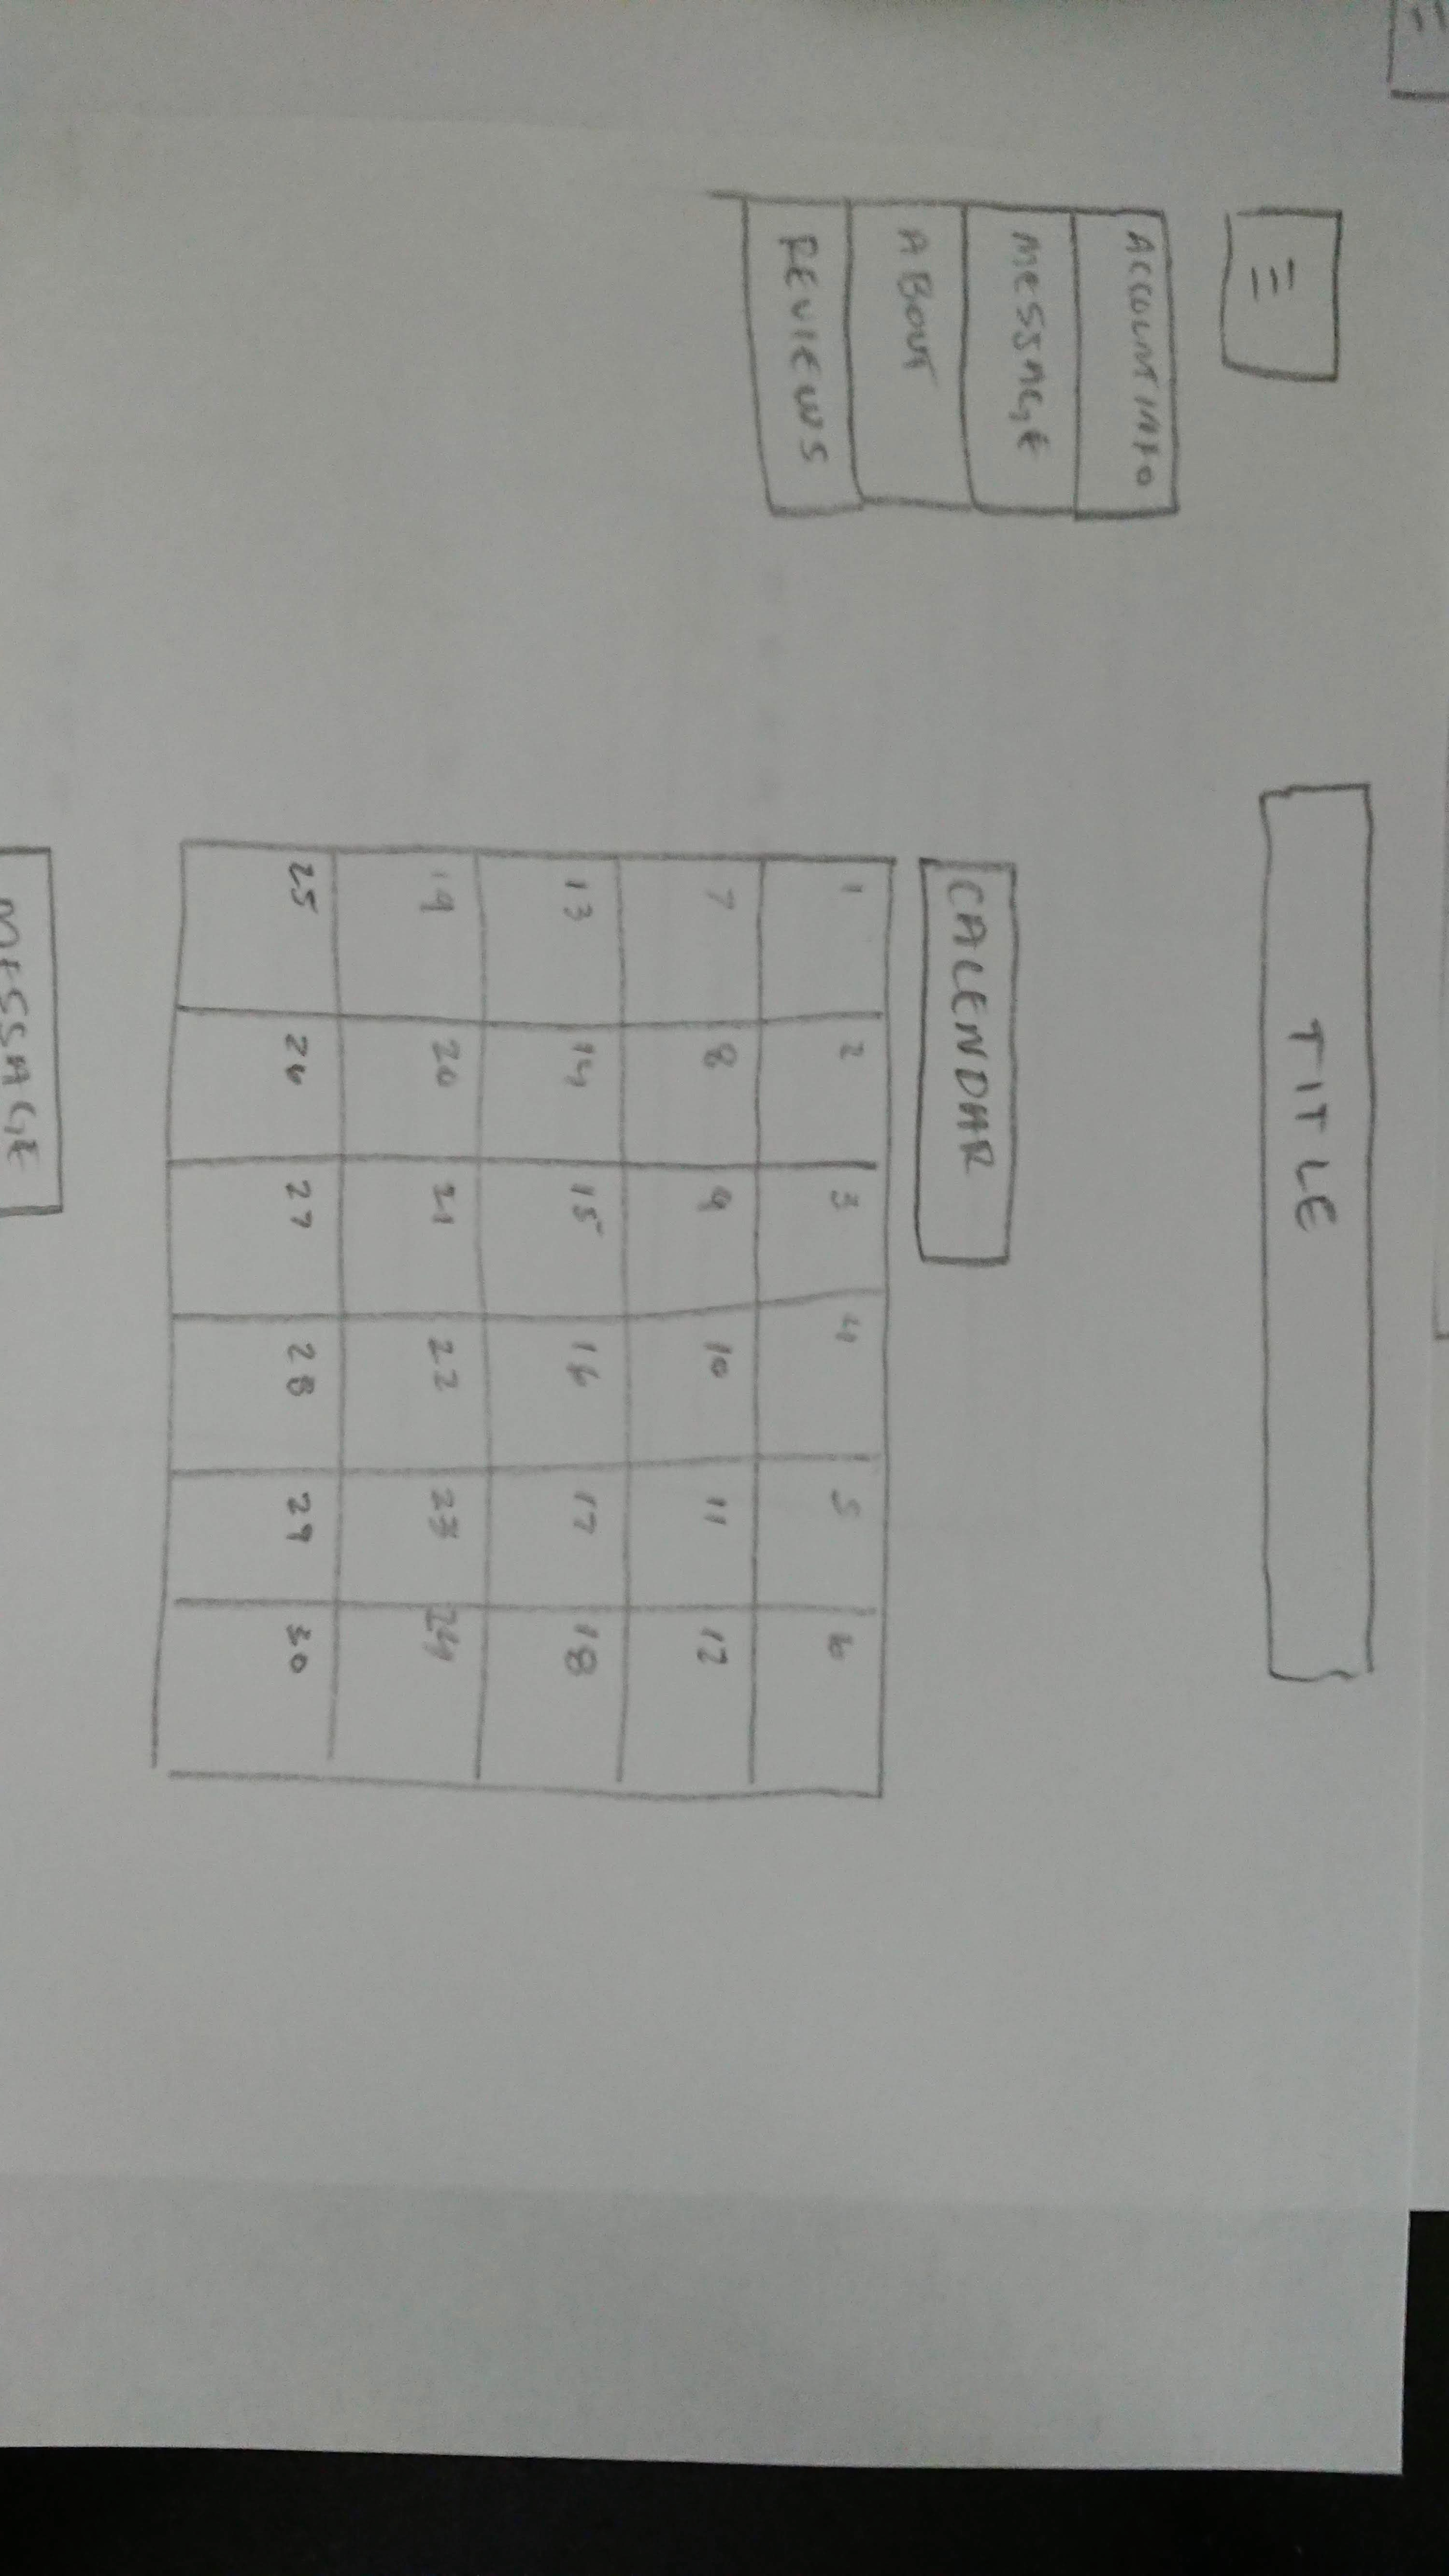 TITLE
ACCOUNT INFO
MESSAGE
ABOUT
REVIEWS
CALENDAR
1 2 3 4 5 6
7 8 9 10 11 12
13 14 15 16 17 18
19 20 21 22 23 24
25 26 27 28 29 30
MESSAGE